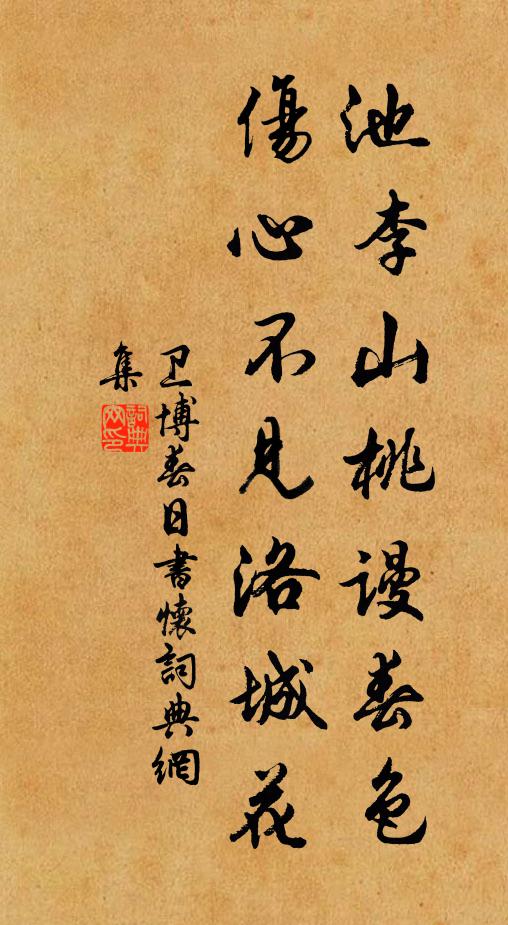 池李山桃謾春色
傷心不見洛城花
卫博春日書懷詞典網
集
詞典網印